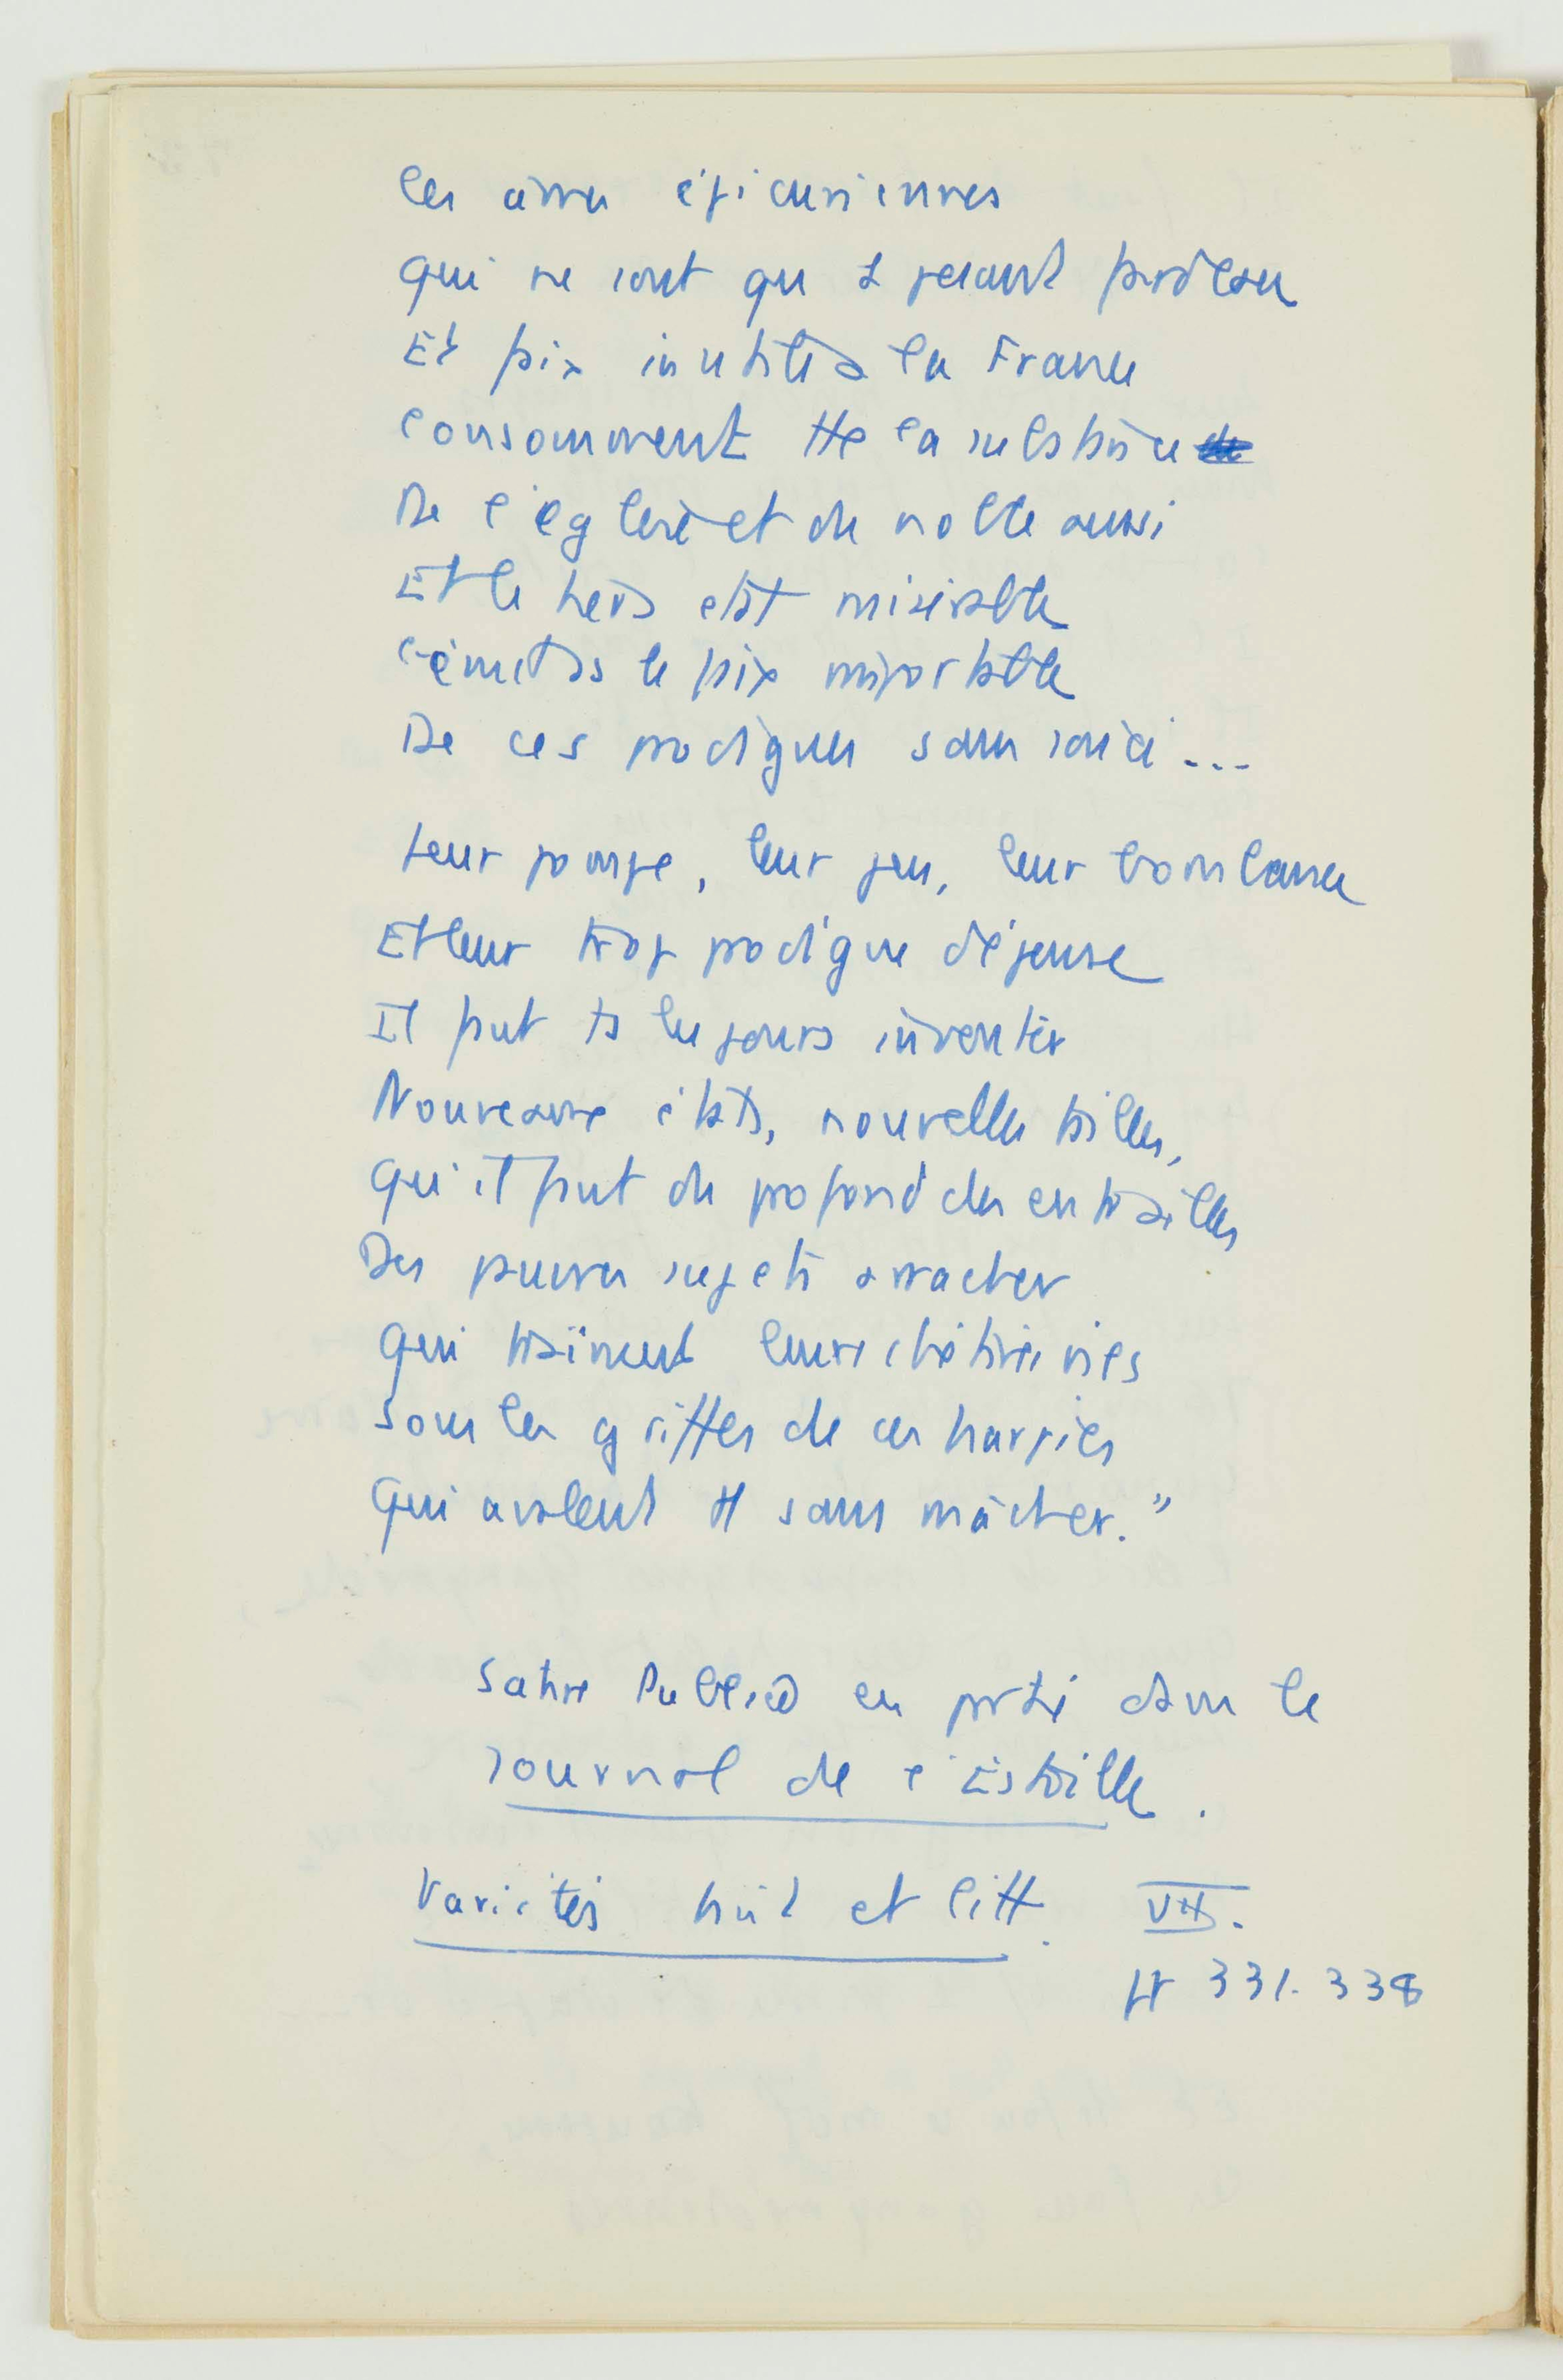 Ces âmes épicuriennes
Qui ne sont qu'un pesant fardeau
Et faix inutile à la France
Consomment tte la substance
De l'église et du noble aussi
Et le tiers état misérable
Gémit ss le faix importable
De ces prodigues sans souci...
Leur pompe, leur jeu, leur bombance
Et leur trop prodigue dépense
Il faut ts les jours inventer
Nouveaux états, nouvelles tailles,
Qu'il faut du profond des entrailles
Des pauvres sujets arracher
Qui traînent leurs chétives vies
Sous les griffes de ces harpies
Qui avalent tt sans mâcher."
Satire Publiée en partie dans le
Journal de l'Estoille.
Variétés hist et litt. VII.
331. 338